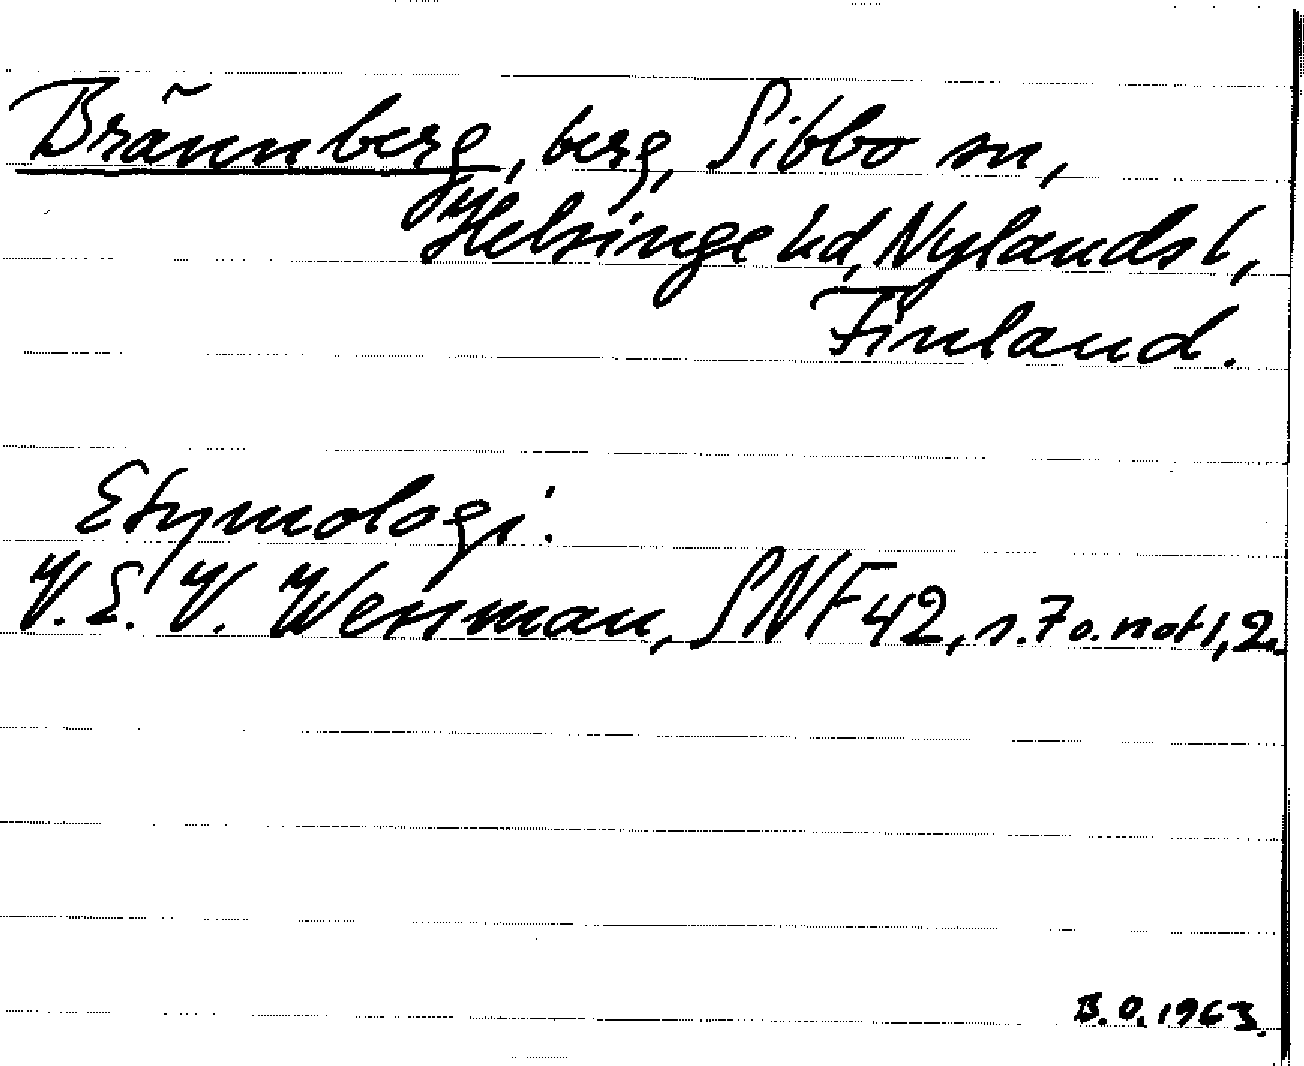 Brännberg, berg, Sibbo sn,
Helsinge hd, Nylands l,
Finland.
Etymologi:
V. E. V. Wessman, SNF 42, s. 7 o. not 1, 2.
B. O. 1963.